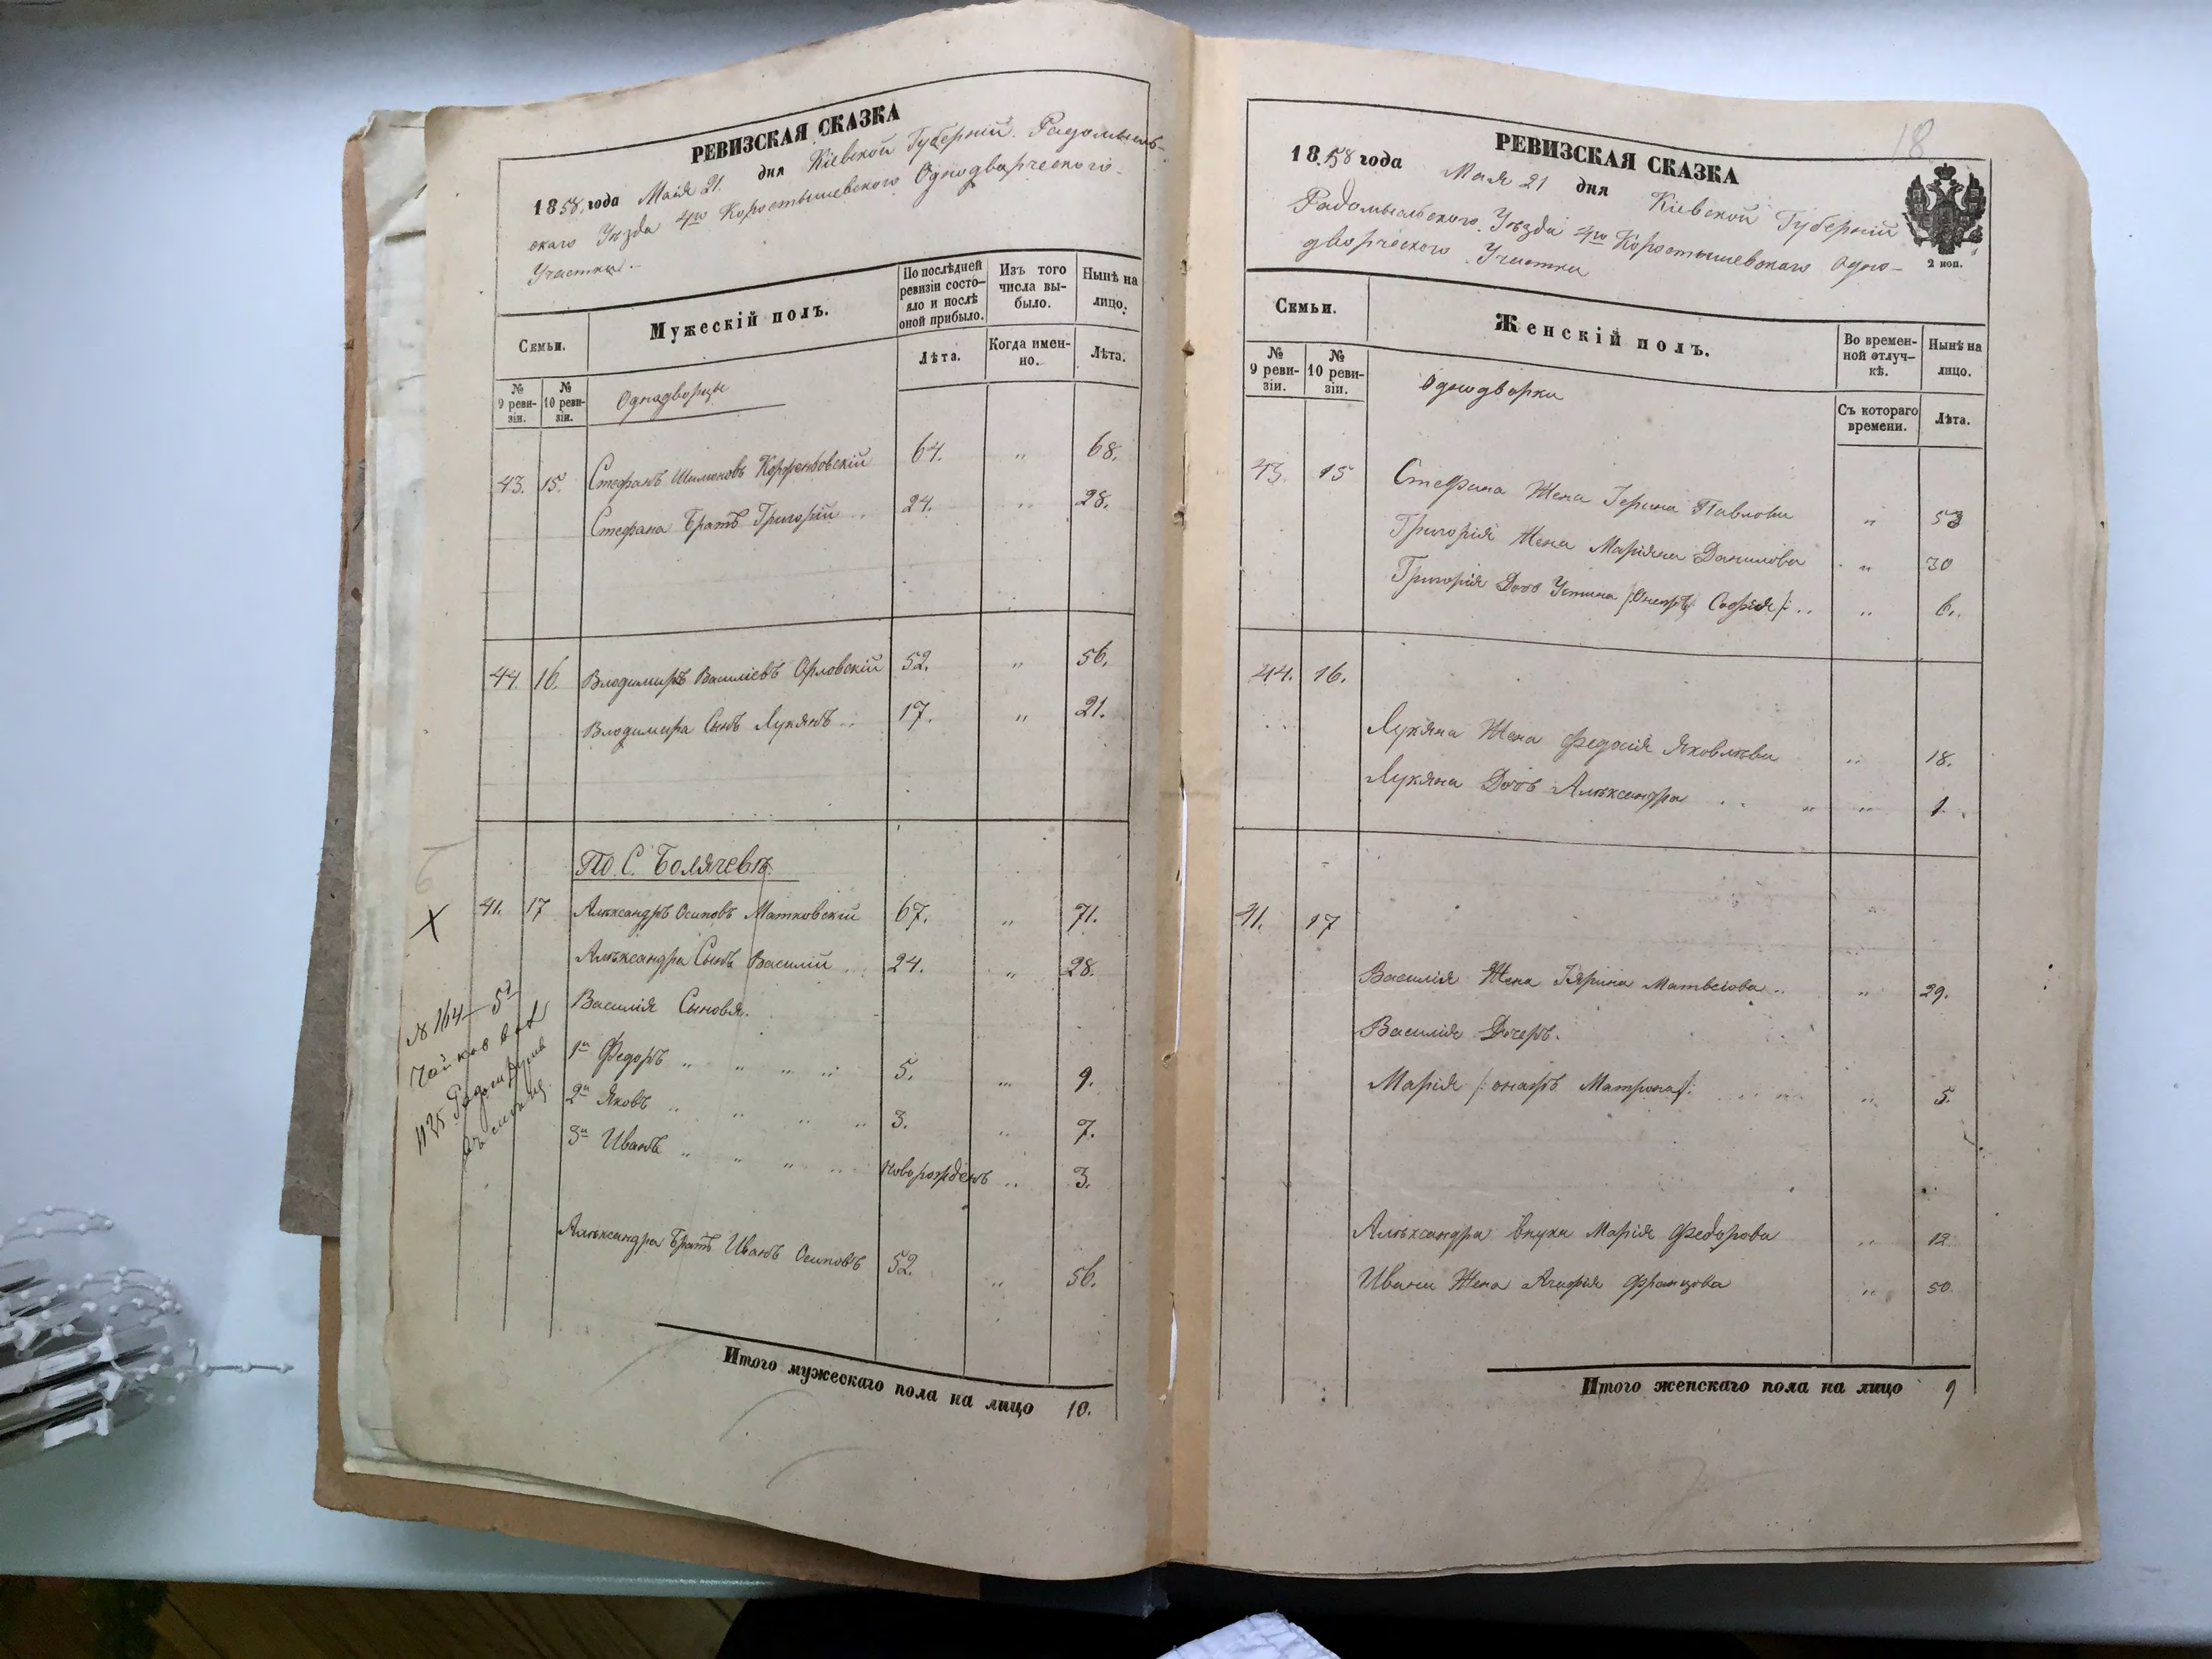 РЕВИЗСКАЯ СКАЗКА
1858 года Маія 21. дня Кіевской Губерніи. Радомысль-
скаго Уѣзда 4го Коростышевскаго Однодворческаго
Участка.
Семьи.
Мужескій полъ.
По послѣдней ревизіи состо-
яло и послѣ
оной прибыло.
Изъ того
числа вы-
было.
Нынѣ на
лицо.
№
9 реви-
зіи.
№
10 реви-
зіи.
Однодворцы
Лѣта.
Когда имен-
но.
Лѣта.
43. 15. Стефанъ Шимоновъ 64. " 68.
Стефана Братъ Григорій .. 24. " 28.
44. 16. Владимиръ Василіевъ Орловскій 52. " 56.
Владимира Сынъ Лукянъ .. 17. " 21.
По. С. Болячевѣ.
41. 17 Александръ Осиповъ Матковскій 67. " 71.
Александра Сынъ Василій .. 24. " 28.
Василія Сыновя.
1й Федоръ " " " " 5. " 9.
2й Яковъ " " " " 3. " 7.
3й Иванъ " " " " новорожденъ " 3.
Александра Братъ Иванъ Осиповъ 52. " 56.
№ 164
Итого мужескаго пола на лицо 10.
18
РЕВИЗСКАЯ СКАЗКА
1858 года Мая 21 дня Кіевской Губерніи
Радомысльскаго Уѣзда 4го Коростышевскаго Одно-
дворческаго Участка
2 коп.
Семьи.
Женскій полъ.
Во времен-
ной отлуч-
кѣ.
Нынѣ на
лицо.
№
9 реви-
зіи.
№
10 реви-
зіи.
Однодворки
Съ котораго
времени.
Лѣта.
43. 15 Стефана Жена Ірина Павлова " 53
Григорія Жена Маріяна Данилова " 30
Григорія Дочь Устина /: Софія /: .. " 6.
44. 16.
Лукяна Жена Яковлева " 18.
Лукяна Дочь Александра " " 1.
41. 17
Василія Жена Ірина Матвеіова .. " 29.
Василія Дочерь.
Марія /: онажъ Матрона /: " 5.
Александра внука Марія Федорова " 12.
Ивана Жена Агафія Францова " 50.
Итого женскаго пола на лицо 9